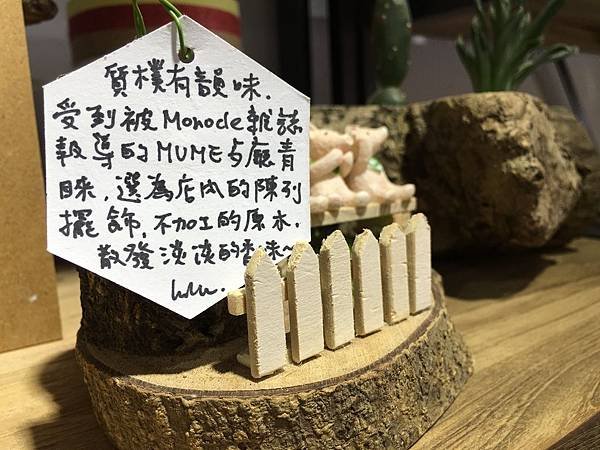 質樸有韻味.
受到被Monocle雜誌
報導的MUME与廳青
睞，選為店内的陳列
擺飾，不加工的原木，
散發淡淡的香味~
lulu.